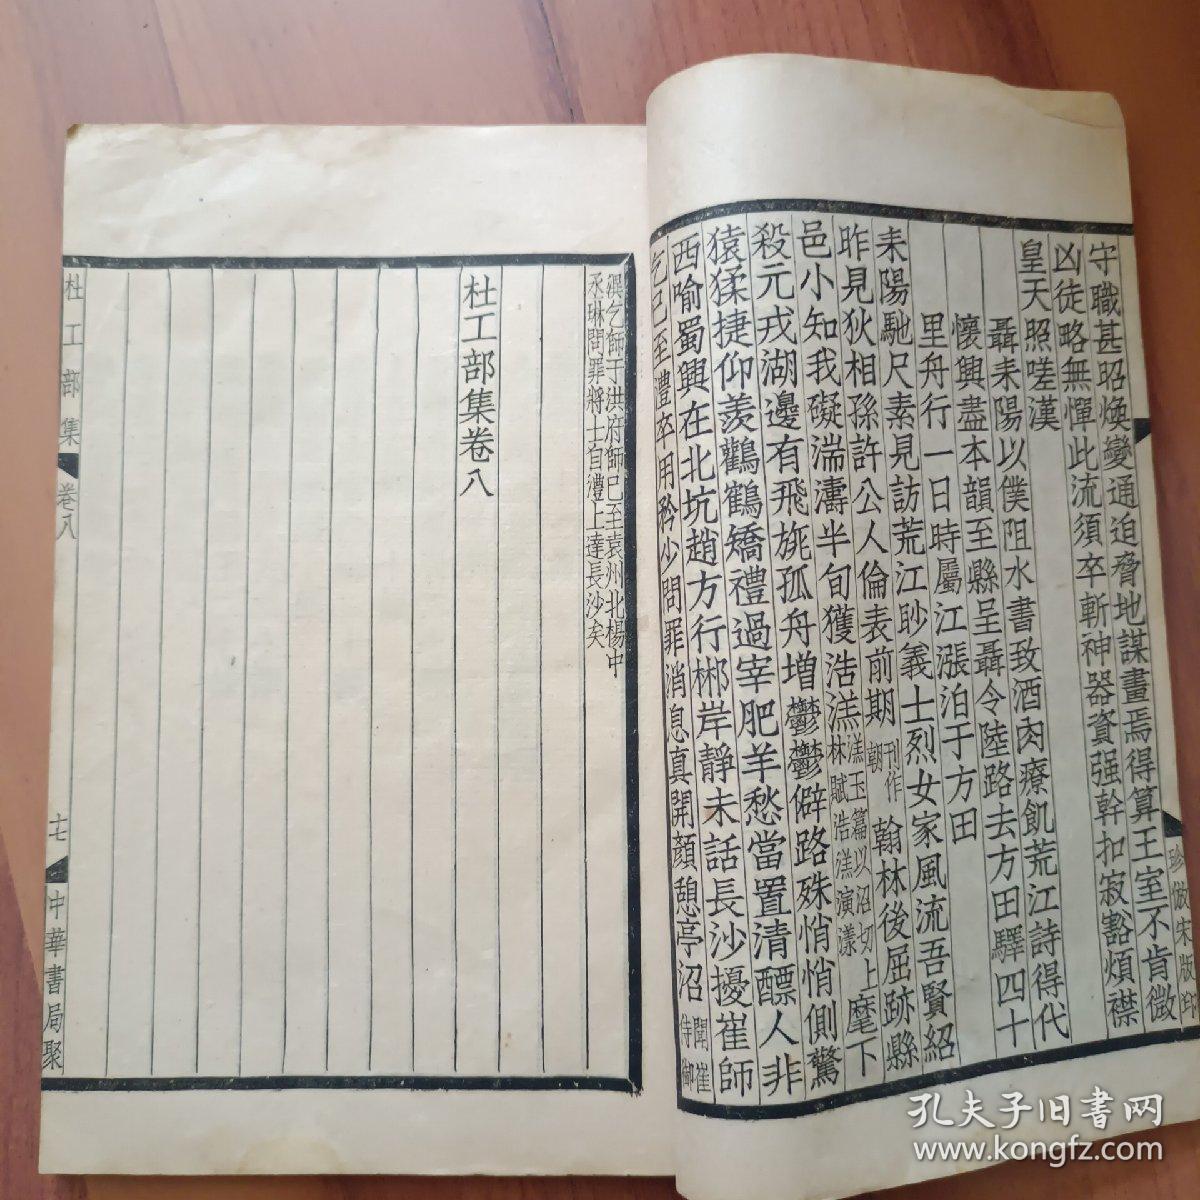 守職甚昭煥變通迫脅地謀畫焉得算王室不肯微
凶徒略無憚此流須卒斬神器資强幹扣寂豁煩襟
皇天照嗟漢
聶耒陽以僕阻水書致酒肉療飢荒江詩得代
懷興盡本韻至縣呈聶令陸路去方田驛四十
里舟行一日時屬江漲泊于方田
耒陽馳尺素見訪荒江眇義士烈女家風流吾賢紹
昨見狄相孫許公人倫表前期
刊作
朝
翰林後屈跡縣
邑小知我礙湍濤半旬獲浩溔
溔玉篇以沼切上
林賦浩溔演漾
麾下
殺元戎湖邊有飛旐孤舟增鬱鬱僻路殊悄悄側驚
猿猱捷仰羨鸛鶴矯禮過宰肥羊愁當置清醥人非
西喻蜀興在北坑趙方行郴岸靜未話長沙擾崔師
乞已至澧卒用矜少問罪消息真開顏憩亭沼
聞崔
侍御
珍倣宋版印
潩乞師于洪府師已至袁州北楊中
丞琳問罪將士自澧上達長沙矣
杜工部集卷八
杜工部集
卷八
十七
中華書局聚
孔夫子旧书网
www.kongfz.com